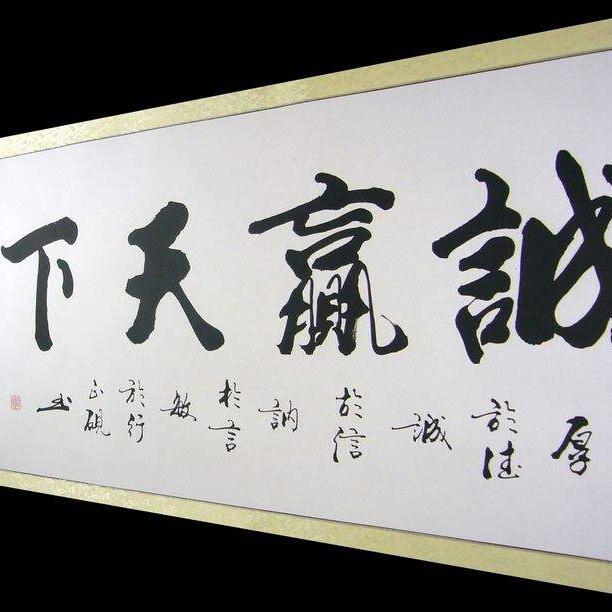 誠贏天下
厚
於德
誠
於信
訥
於言
敏
於行
正硯
书